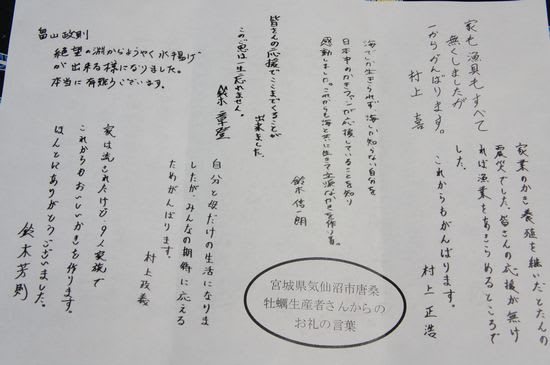 家も漁具もすべて
無くしましたが
一からがんばります。
村上 喜
海でしか生きられず 海しか知らない自分を
日本中のかきファンが応援していることを知り
感動しました。これからも海と共に生きて立派なかきを作ります。
鈴木 信一朗
皆さんの応援でここまでくることが
出来ました。
このご恩は一生忘れません。
鈴木 章登
畠山政則
絶望の淵からようやく水揚げ
が出来る様になりました。
本当に有難うございます。
家業のかき養殖を継いだとたんの
震災でした。皆さんの応援が無け
れば漁業をあきらめるところで
した。
これからもがんばります。
村上 正浩
自分と母だけの生活になりま
したが、みんなの期待に応える
ためがんばります。
村上政義
家は流されたけど、9人家族で
これからもおいしいかきを作ります。
ほんとにありがとうございました。
鈴木芳則
宮城県気仙沼市唐桑
牡蠣生産者さんからの
お礼の言葉